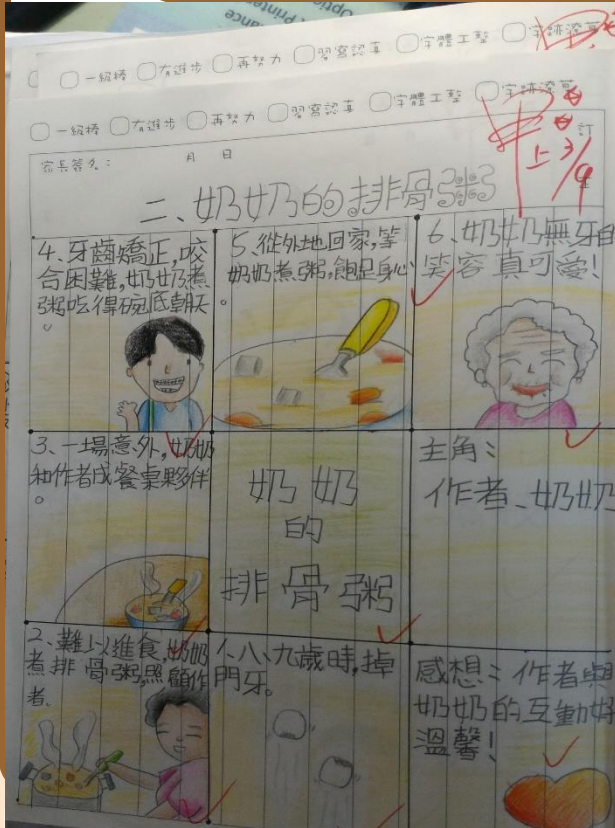 Option
Printe
ance
一級棒 有進步 再努力 習寫認真 字體工整 字跡潦草
一級棒 有進步 再努力 習寫認真 字體工整 字跡潦草
家長簽名： 月 日
訂
上 3/9
二、奶奶的排骨粥
4、牙齒矯正,咬
合困難,奶奶煮
粥吃得碗底朝天
。
5、從外地回家,等
奶奶煮粥,飽足身心
。
6、奶奶無牙的
笑容真可愛!
3、一場意外,奶奶
和作者成餐桌夥伴
。
奶奶
的
排骨粥
主角：
作者、奶奶
2、難以進食,奶奶
煮排骨粥,照顧作
者.
1、八、九歲時,掉
門牙。
感想：作者與
奶奶的互動好
溫馨!